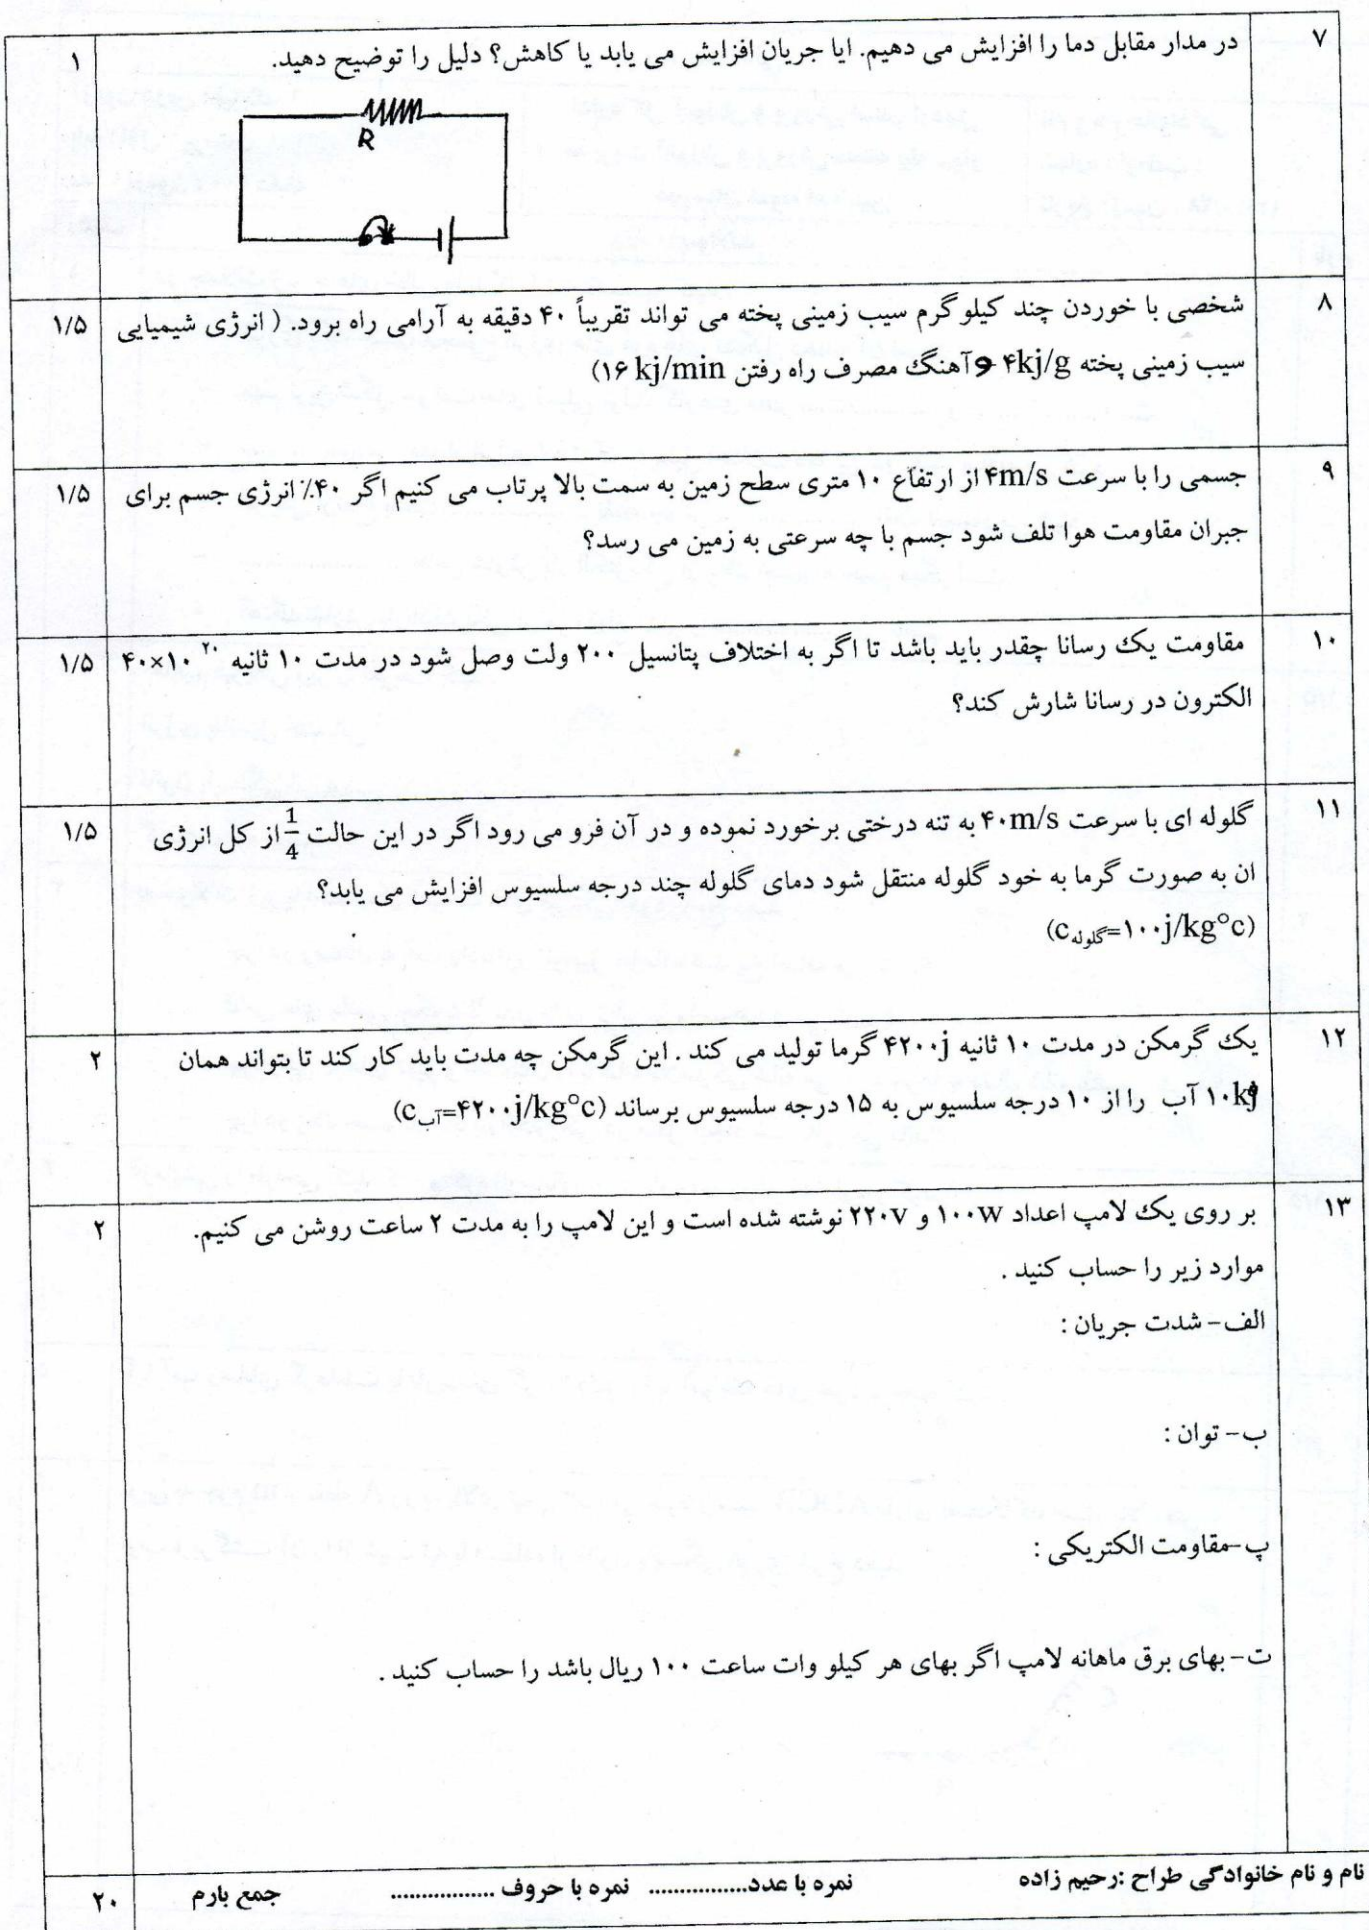 ۷ در مدار مقابل دما را افزایش می دهیم. ایا جریان افزایش می یابد یا کاهش؟ دلیل را توضیح دهید. ۱
R
۸ شخصی با خوردن چند کیلو گرم سیب زمینی پخته می تواند تقریباً ۴۰ دقیقه به آرامی راه برود. ( انرژی شیمیایی ۱/۵
سیب زمینی پخته ۴kj/g و آهنگ مصرف راه رفتن ۱۶ kj/min)
۹ جسمی را با سرعت ۴m/s از ارتفاع ۱۰ متری سطح زمین به سمت بالا پرتاب می کنیم اگر ۴۰٪ انرژی جسم برای ۱/۵
جبران مقاومت هوا تلف شود جسم با چه سرعتی به زمین می رسد؟
۱۰ مقاومت یک رسانا چقدر باید باشد تا اگر به اختلاف پتانسیل ۲۰۰ ولت وصل شود در مدت ۱۰ ثانیه ۴۰×۱۰ ²⁰ ۱/۵
الکترون در رسانا شارش کند؟
۱۱ گلوله ای با سرعت ۴۰m/s به تنه درختی برخورد نموده و در آن فرو می رود اگر در این حالت 1/4 از کل انرژی ۱/۵
ان به صورت گرما به خود گلوله منتقل شود دمای گلوله چند درجه سلسیوس افزایش می یابد؟
(c گلوله=۱۰۰j/kg°c)
۱۲ یک گرمکن در مدت ۱۰ ثانیه ۴۲۰۰j گرما تولید می کند . این گرمکن چه مدت باید کار کند تا بتواند همان ۲
۱۰kg آب را از ۱۰ درجه سلسیوس به ۱۵ درجه سلسیوس برساند (c آب=۴۲۰۰j/kg°c)
۱۳ بر روی یک لامپ اعداد ۱۰۰W و ۲۲۰V نوشته شده است و این لامپ را به مدت ۲ ساعت روشن می کنیم. ۲
موارد زیر را حساب کنید .
الف- شدت جریان :
ب- توان :
پ-مقاومت الکتریکی :
ت- بهای برق ماهانه لامپ اگر بهای هر کیلو وات ساعت ۱۰۰ ریال باشد را حساب کنید .
نام و نام خانوادگی طراح :رحیم زاده نمره با عدد................ نمره با حروف ................. جمع بارم ۲۰